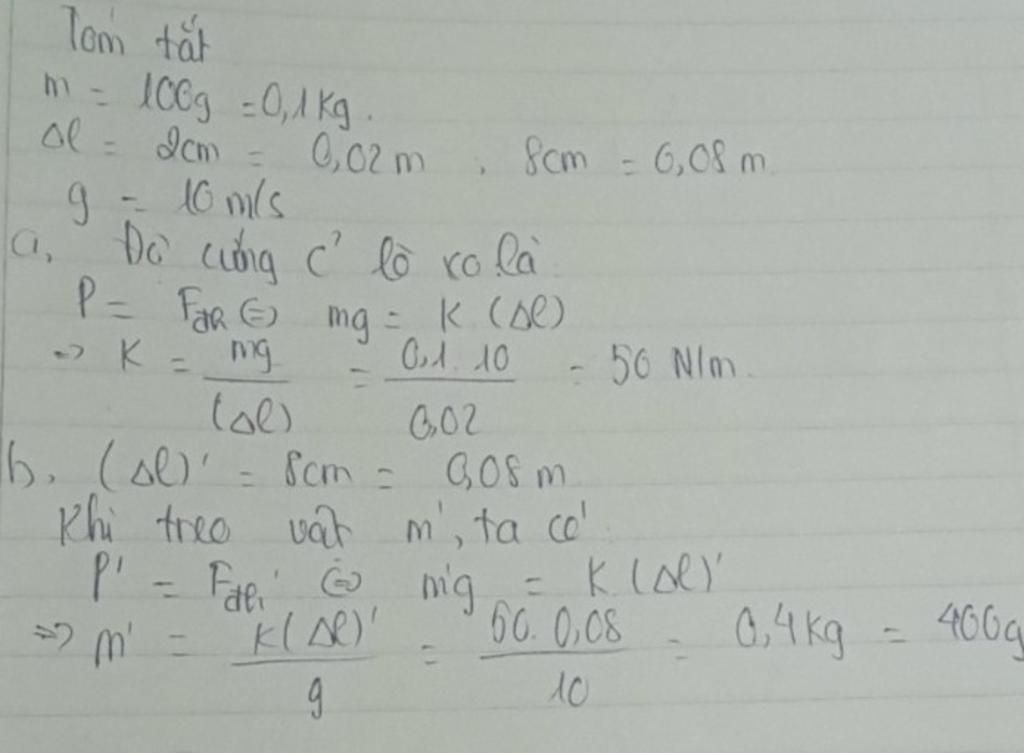 Tóm tắt
m = 100g = 0,1 Kg.
Δl = 2cm = 0,02 m , 8cm = 0,08 m
g = 10 m/s
a, Độ cứng c² lò xo là
P = Fđh ⇔ mg = K (Δl)
=> K = mg/(Δl) = 0,1.10/0,02 = 50 N/m.
b, (Δl)' = 8cm = 0,08 m
Khi treo vật m', ta có
P' = Fđh' ⇔ m'g = K (Δl)'
=> m' = K(Δl)'/g = 50.0,08/10 = 0,4kg = 400g